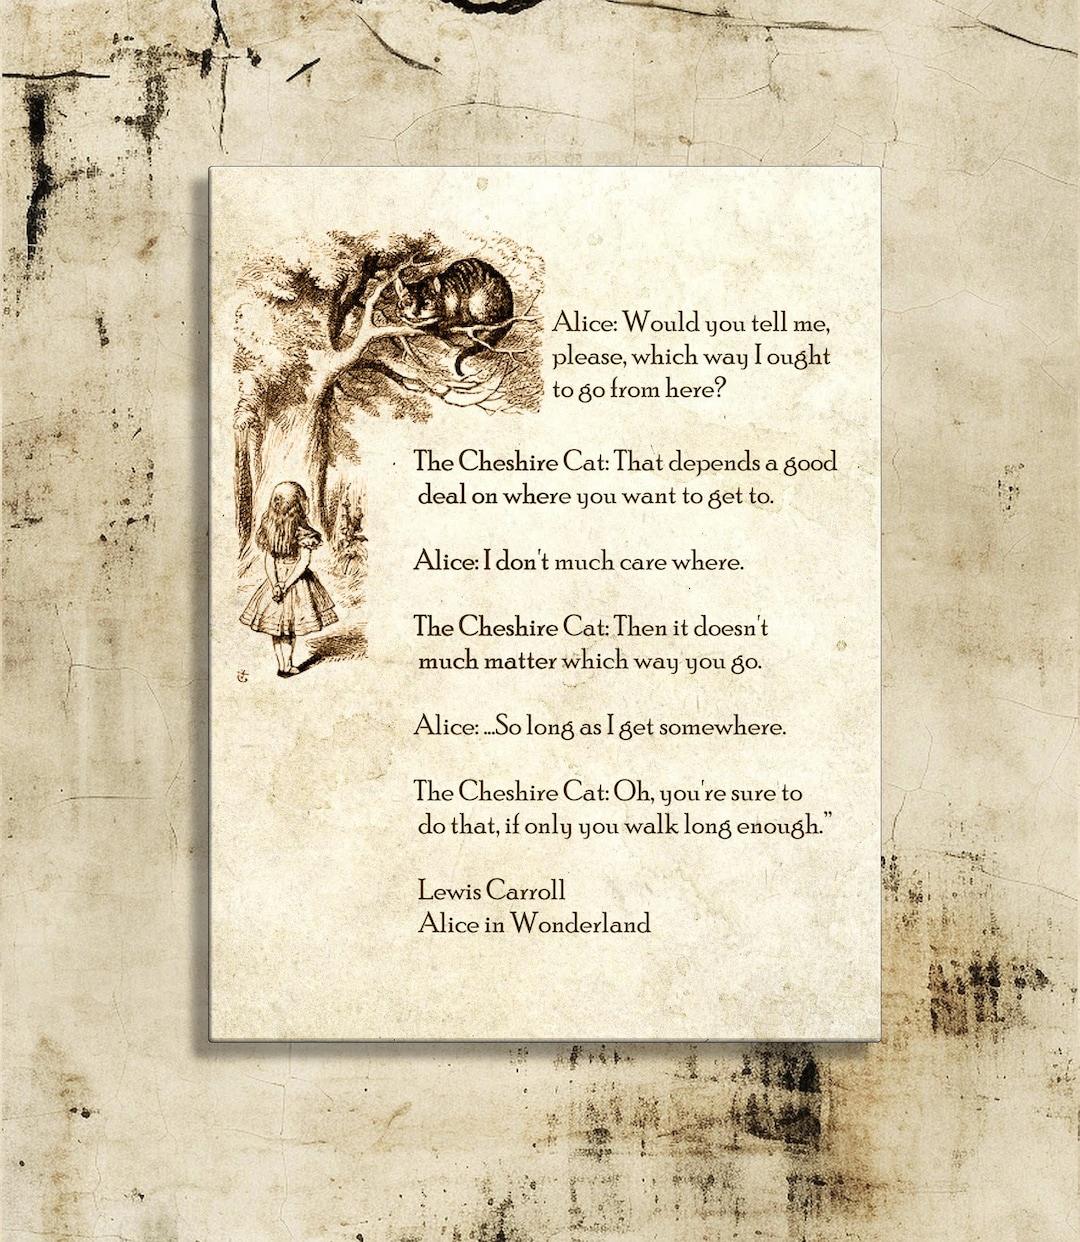 Alice: Would you tell me,
please, which way I ought
to go from here?
The Cheshire Cat: That depends a good
deal on where you want to get to.
Alice: I don't much care where.
The Cheshire Cat: Then it doesn't
much matter which way you go.
Alice: ...So long as I get somewhere.
The Cheshire Cat: Oh, you're sure to
do that, if only you walk long enough.”
Lewis Carroll
Alice in Wonderland